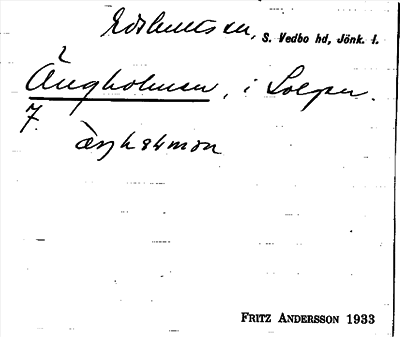 Edshults sn, S. Vedbo hd, Jönk. l.
Ängholmen, i Solgen.
7.
äŋhɔlmən
FRITZ ANDERSSON 1933